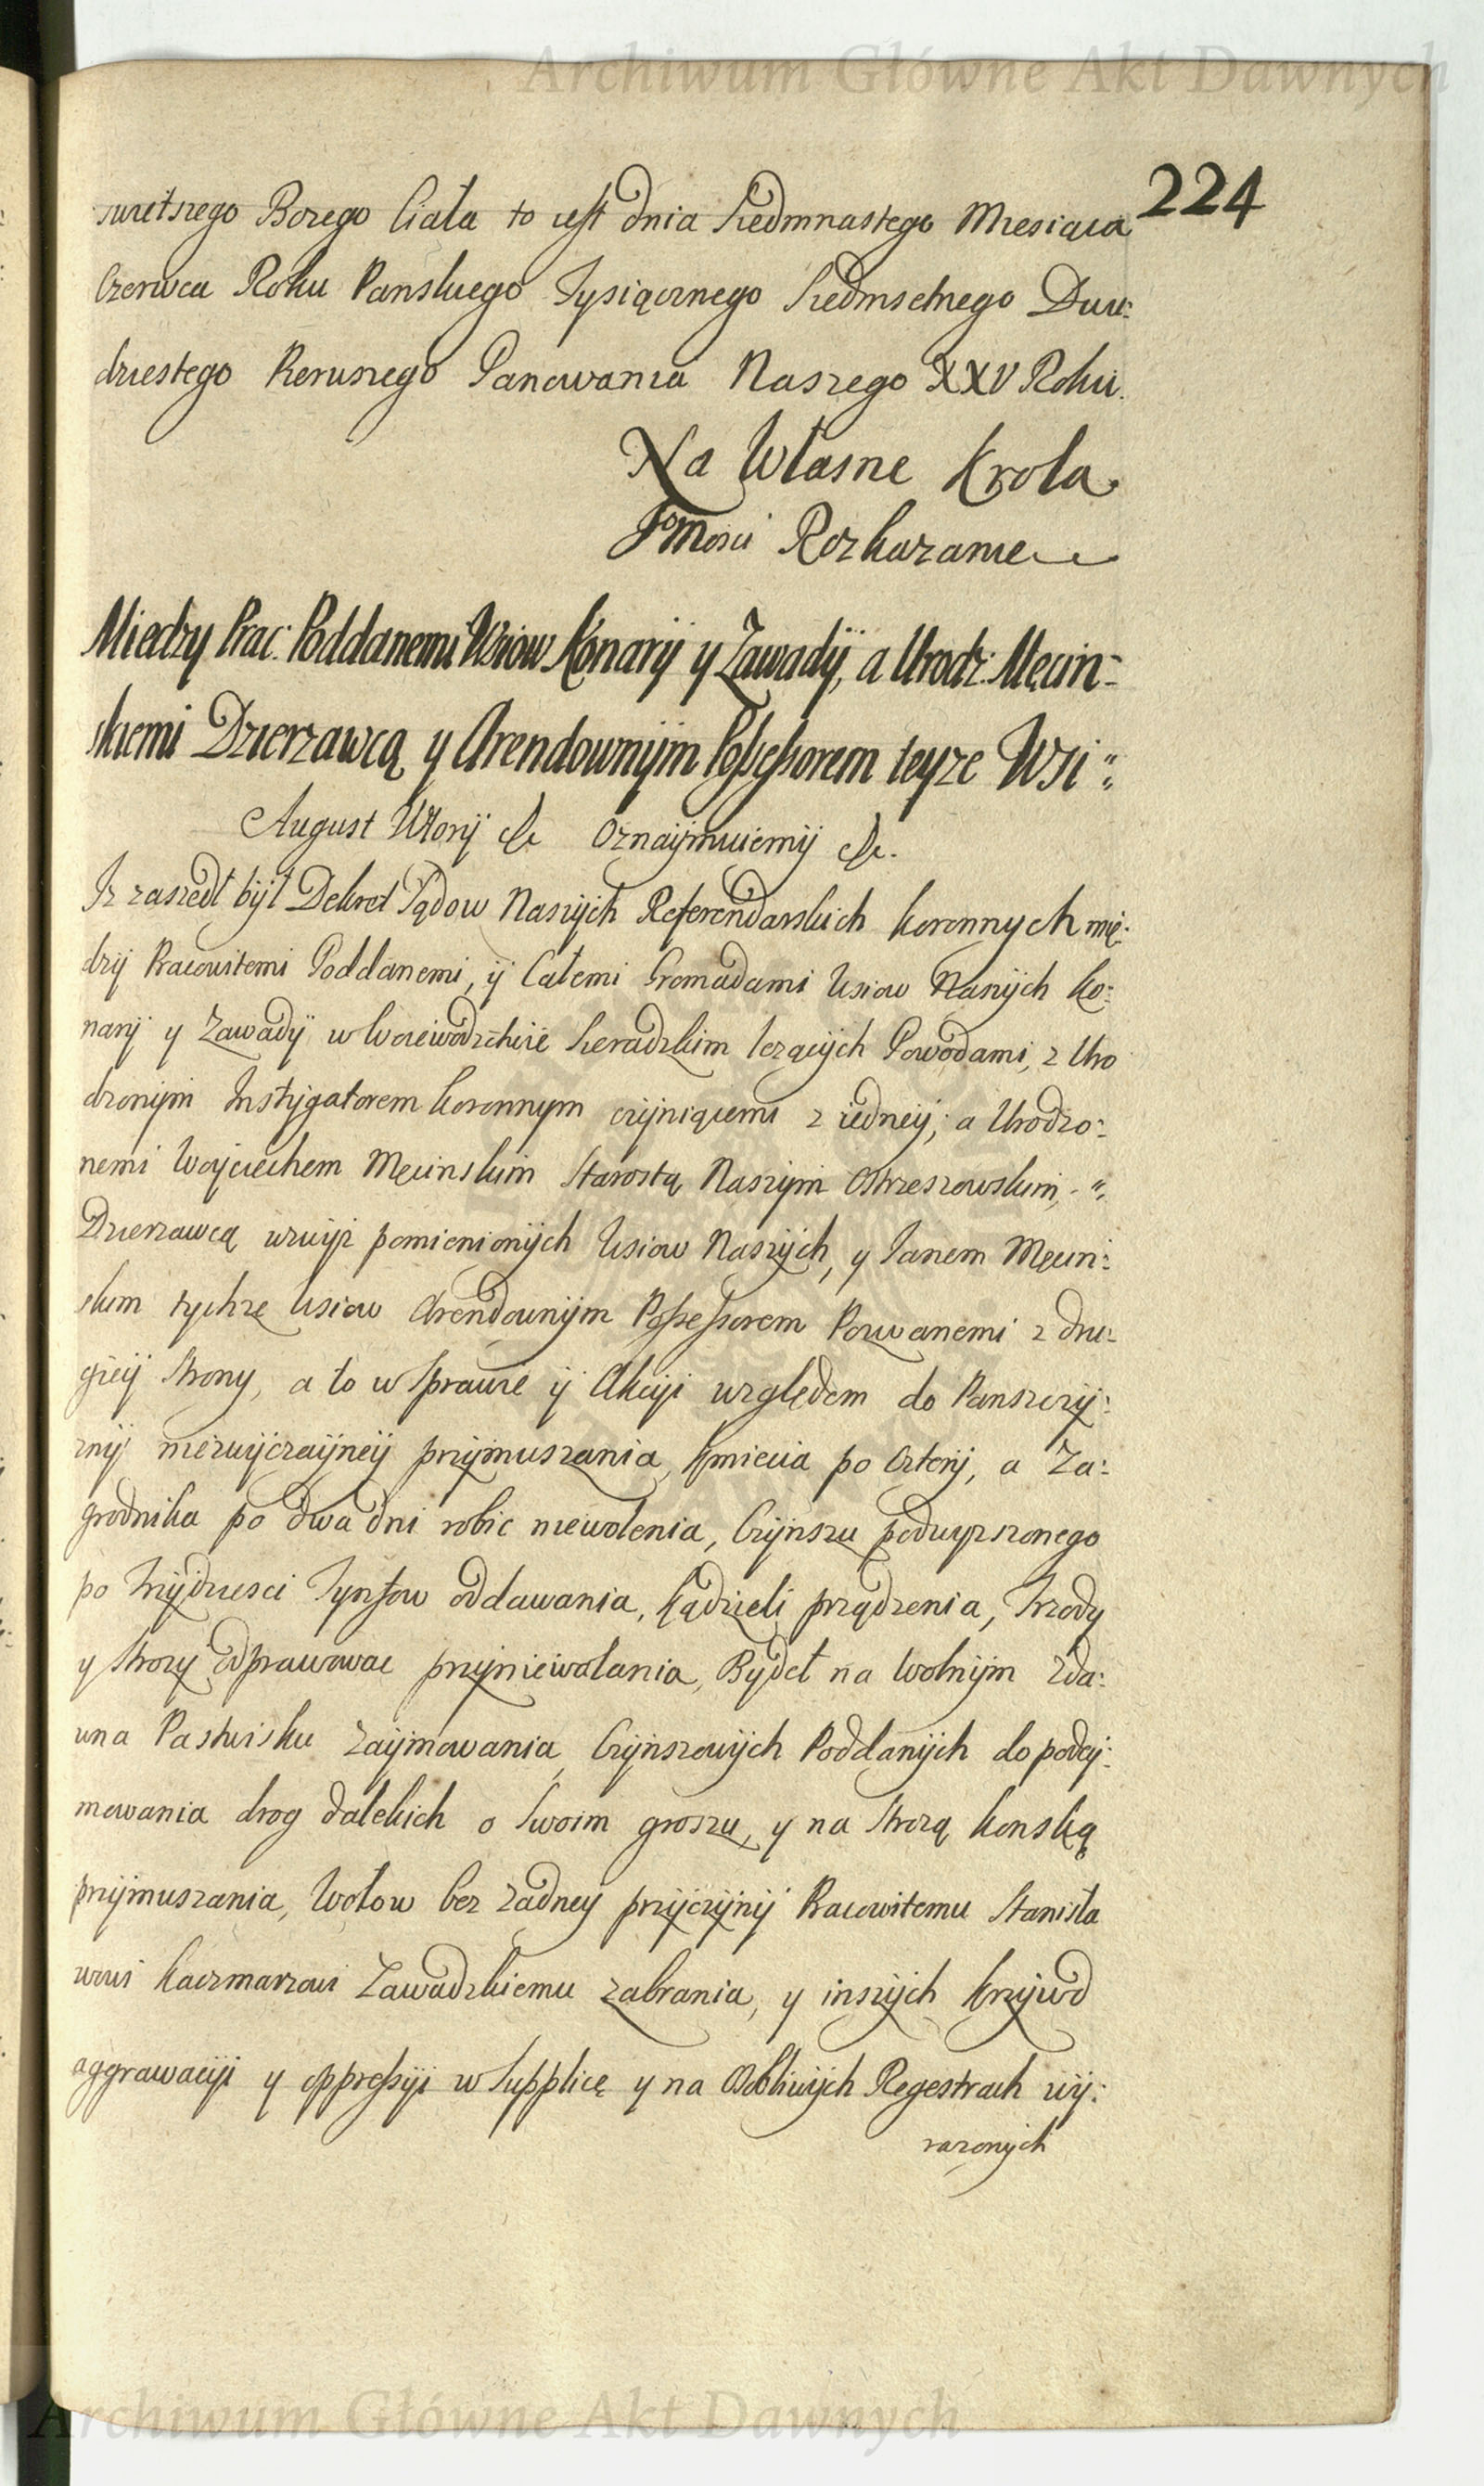 Archiwum Główne Akt Dawnych
224
swietszego Bozego Ciała to iest dnia Siedmnastego Miesiąca
Czerwca Roku Panskiego Tysiącznego Siedmsetnego Dwu:
dziestego Pierwszego Panowania Naszego XXV Roku.
Na Własne Krola
JoMosci Rozkazanie
Miedzy Prac: Poddanemi Wsiow Konarÿ y Zawadÿ, a Urodz: Męcin=
skiemi Dzierzawcą y Arendownÿm Possessorem teyze Wsi "
August Wtorÿ &c Oznaÿmuiemÿ &c.
Iz zaszedł bÿł Dekret Sądow Naszÿch Referendarskich Koronnych mię:
dzÿ Pracowitemi Poddanemi, ÿ Całemi Gromadami Wsiow Naszÿch Ko:
narÿ y Zawadÿ w Woiewodztwie Sieradzkim lezącÿch Powodami, z Uro
dzonÿm Instÿgatorem Koronnym czÿniącemi z iedneÿ, a Urodzo:
nemi Woÿciechem Męcinskim Starostą Naszÿm Ostrzeszowskim, "
Dzierzawcą wzwÿz pomienionÿch Wsiow Naszÿch, y Janem Męcin:
skim tychze Wsiow Arendownÿm Possessorem Pozwanemi z dru:
gieÿ Strony, a to w Sprawie ÿ Akcÿi względem do Panszczÿ:
znÿ niezwÿczaÿneÿ przÿmuszania, Kmiecia po Czterÿ, a Za:
grodnika po dwa dni robic niewolenia, Czÿnszu podwyzszonego
po Trzÿdziesci Tynfow oddawania, Kądzieli przędzenia, Trzody
y Strozÿ odprawowac przÿniewalania, Bÿdeł na Wolnÿm zda:
wna Pastwisku zaÿmowania, Czÿnszowÿch Poddanÿch do podeÿ:
mowania drog dalekich o Swoim groszu, y na Strozą Konską
przÿmuszania, Wołow bez zadneÿ przÿczÿnÿ Pracowitemu Stanisła
wowi Kaczmarzowi Zawadzkiemu zabrania, y inszÿch Krzÿwd
aggrawacÿi y oppressÿi w Supplicę y na Osobliwÿch Regestrach wÿ:
razonÿch
Archiwum Główne Akt Dawnych